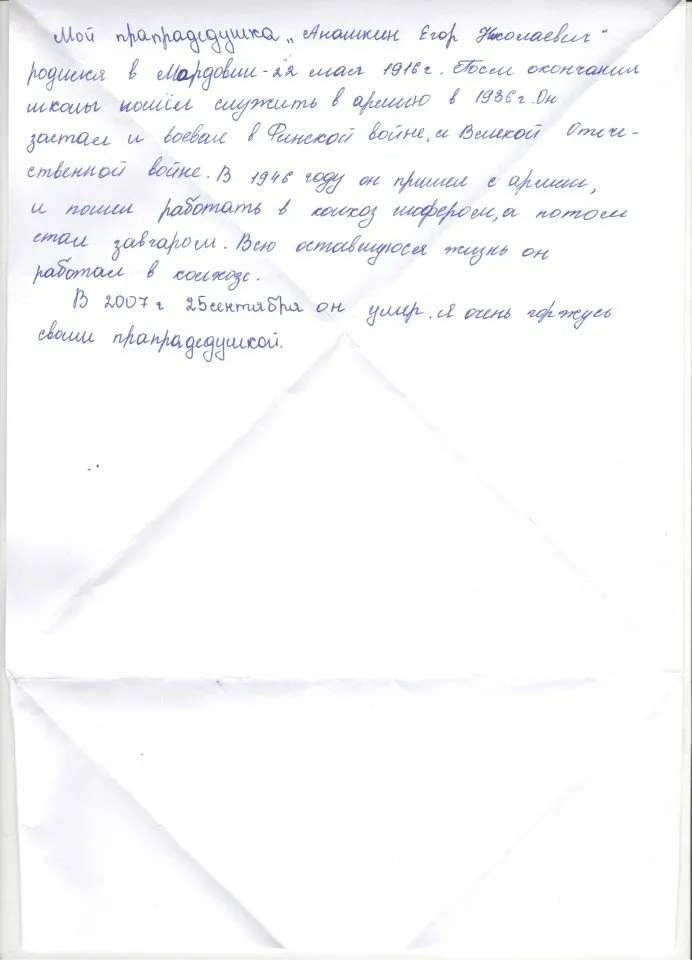 Мой прапрадедушка „Анашкин Егор Николаевич"
родился в Мардовии-22 мая 1916г. После окончания
школы пошёл служить в армию в 1936г. Он
застал и воевал в Финской войне, и Великой Отече-
ственной войне. В 1946 году он пришел с армии,
и пошел работать в колхоз шофером, а потом
стал завгаром. Всю оставшуюся жизнь он
работал в колхозе.
В 2007г 25 сентября он умер. Я очень горжусь
своим прапрадедушкой.